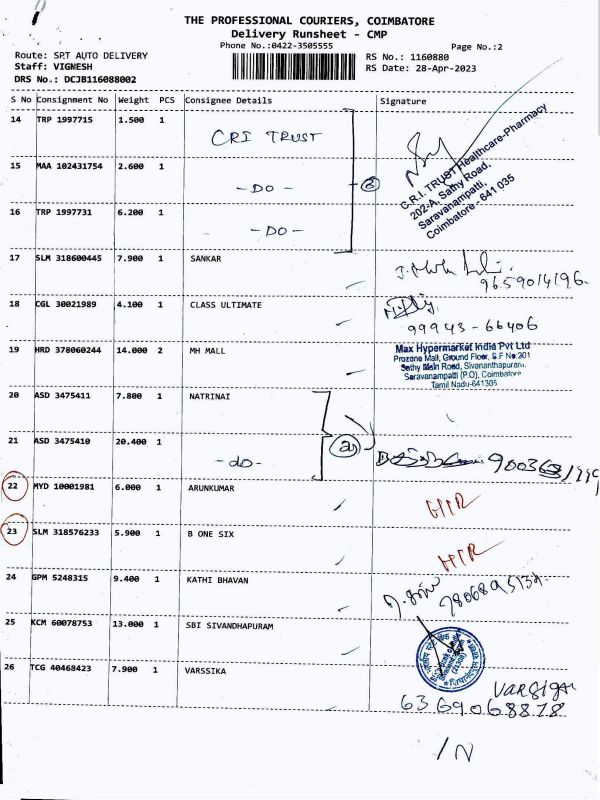 THE PROFESSIONAL COURIERS, COIMBATORE
Delivery Runsheet - CMP
Phone No.:0422-3505555 Page No.:2
Route: SPT AUTO DELIVERY RS No.: 1160880
Staff: VIGNESH RS Date: 28-Apr-2023
DRS No.: DCJB116088002
S No Consignment No Weight PCS Consignee Details Signature
14 TRP 1997715 1.500 1 CRI TRUST
C.R.I. TRUST Healthcare-Pharmacy
202-A, Sathy Road,
Saravanampatti,
Coimbatore - 641 035
15 MAA 102431754 2.600 1 - DO - 3
16 TRP 1997731 6.200 1 - DO -
17 SLM 318600445 7.900 1 SANKAR
9659014196.
18 CGL 30021989 4.100 1 CLASS ULTIMATE
99943-66406
19 HRD 378060244 14.000 2 MH MALL
Max Hypermarket India Pvt Ltd
Prozone Mall, Ground Floor, S.F No:201
Sathy Main Road, Sivananthapuram,
Saravanampatti (P.O), Coimbatore
Tamil Nadu-641305
20 ASD 3475411 7.800 1 NATRINAI
21 ASD 3475410 20.400 1 -do- 2
22 MYD 10001981 6.000 1 ARUNKUMAR
23 SLM 318576233 5.900 1 B ONE SIX
24 GPM 5248315 9.400 1 KATHI BHAVAN
25 KCM 60078753 13.000 1 SBI SIVANDHAPURAM
26 TCG 40468423 7.900 1 VARSSIKA
6369068878
/N